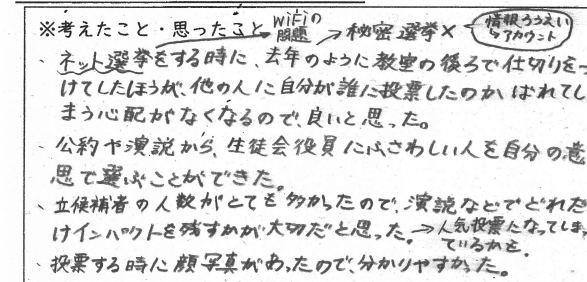 ※考えたこと・思ったこと WiFiの問題 → 秘密選挙×
情報ろうえい
↳アカウント
・ネット選挙をする時に、去年のように教室の後ろで仕切りをつ
けてしたほうが、他の人に自分が誰に投票したのかばれてし
まう心配がなくなるので、良いと思った。
・公約や演説から、生徒会役員にふさわしい人を自分の意
思で選ぶことができた。
・立候補者の人数がとても多かったので、演説などでどれだ
けインパクトを残すかが大切だと思った。→人気投票になってしまっ
ているかも。
・投票する時に顔写真があったので、分かりやすかった。